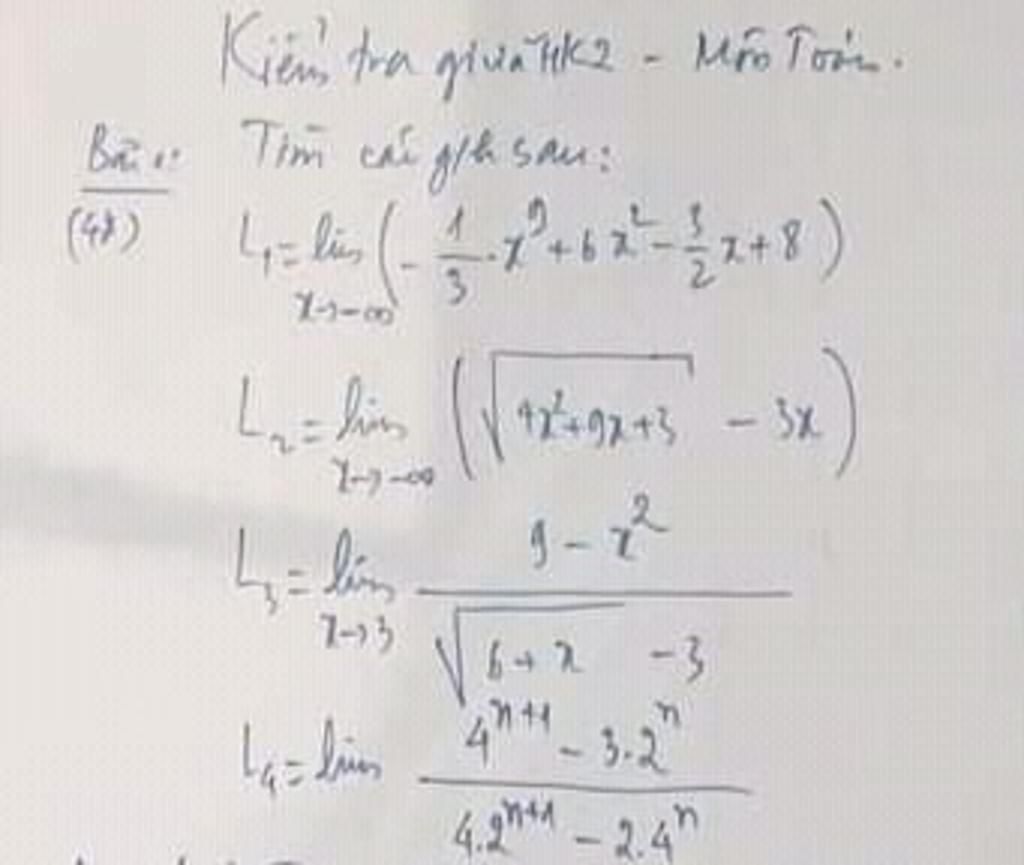 Kiểm tra giữa HK2 - Môn Toán.
Bài 1: Tìm các g/h sau:
(4đ) L₁ = lim x→-∞ (-1/3.x⁹ + 6x² - 3/2 x + 8)
L₂ = lim x→-∞ (√(4x²+9x+3) - 3x)
L₃ = lim x→3 (9 - x²)/(√(6+x) - 3)
L₄ = lim (4ⁿ⁺¹ - 3.2ⁿ)/(4.2ⁿ⁺¹ - 2.4ⁿ)